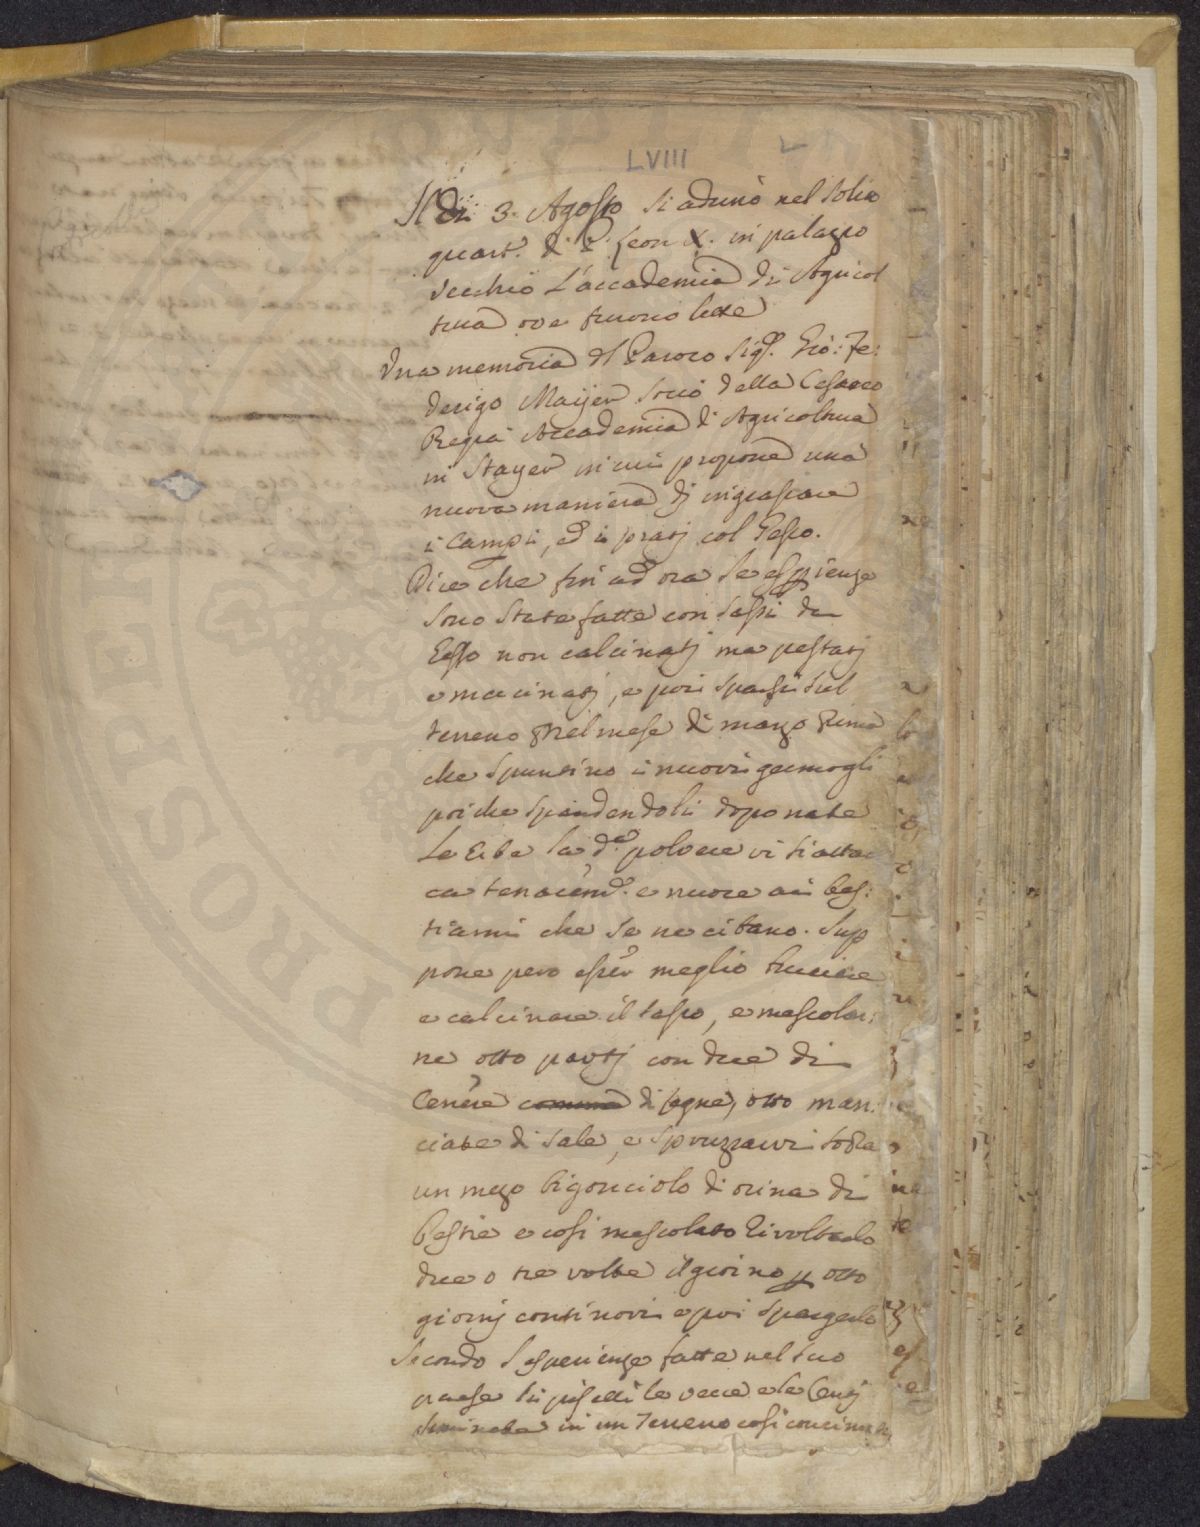 LVIII
Il di 3. Agosto si adunò nel solito
quart.e di P. Leon X. in palazzo
vecchio L'accademia di Agricol
tura ove furono lette
Una memoria del Paroco Sig.e Gio: Fe:
derigo Maijer socio della Cesareo
Regia Accademia di Agricoltura
in Stayer in cui propone una
nuova maniera di ingrassare
i Campi, ed i pratj col Gesso.
Dice che fin ad ora le esperienze
sono state fatte con sassi di
Gesso non calcinatj ma pestatj
e macinatj, e poi sparsi sul
terreno nel mese di marzo prima
che spuntino i nuovi germogli
poiche spandendoli dopo nate
Le Erbe la d.a polvere vi si attac
ca tenacem.e e nuoce ai bes:
tiami che se ne cibano. Sup
pone pero esser meglio bruciare
e calcinare il sasso, e mescolar:
ne otto partj con due di
Cenere comune di legne, otto man:
ciate di sale, e spruzzarvi sopra
un mezo bigonciolo di orina di
bestie e cosi mescolato Rivoltarlo
due o tre volte il giorno p otto
giornj continovi e poi spargerlo
Secondo l'esperienze fatte nel suo
paese li piselli le vecce e le Lentj
seminate in un Terreno cosi concimato